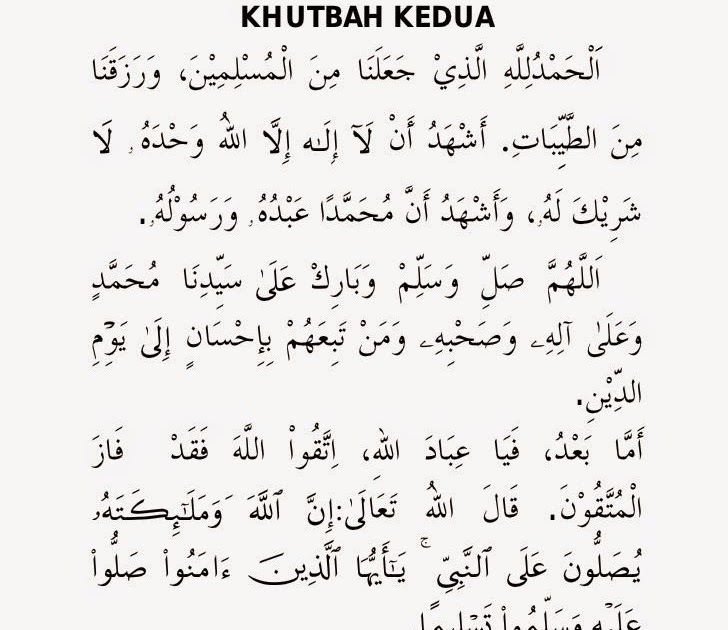 KHUTBAH KEDUA
اَلْحَمْدُلِلَّهِ الَّذِيْ جَعَلَنَا مِنَ الْمُسْلِمِيْنَ، وَرَزَقَنَا
مِنَ الطَّيِّبَاتِ. أَشْهَدُ أَنْ لَآ إِلَـٰه إِلَّا اللهُ وَحْدَهُۥ لَا
شَرِيْكَ لَهُۥ، وَأَشْهَدُ أَنَّ مُحَمَّدًا عَبْدُهُۥ وَرَسُوْلُهُۥ.
اَللَّهُمَّ صَلِّ وَسَلِّمْ وَبَارِكْ عَلَىٰ سَيِّدِنَا مُحَمَّدٍ
وَعَلَىٰ آلِهِۦ وَصَحْبِهِۦ وَمَنْ تَبِعَهُمْ بِإِحْسَانٍ إِلَىٰ يَوْمِ
الدِّيْنِ.
أَمَّا بَعْدُ، فَيَا عِبَادَ اللهِ، اِتَّقُواْ اللَّهَ فَقَدْ فَازَ
الْمُتَّقُوْنَ. قَالَ اللهُ تَعَالَىٰ:إِنَّ ٱللَّهَ وَمَلَـٰٓئِكَتَهُۥ
يُصَلُّونَ عَلَى ٱلنَّبِيِّ ۚ يَـٰٓأَيُّهَا ٱلَّذِينَ ءَامَنُواْ صَلُّواْ
عَلَيْهِ وَسَلِّمُواْ تَسْلِيمًا